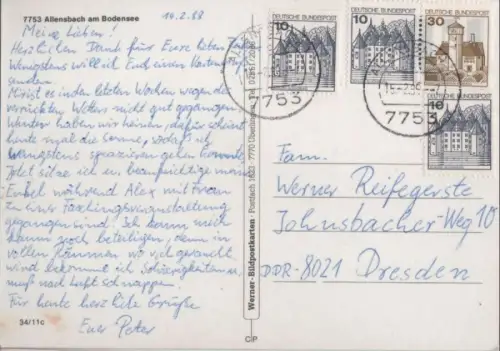 7753 Allensbach am Bodensee
14.2.88
Meine Lieben!
Herzlichen Dank für Eure lieben
Wenigstens will ich Euch einen Kartengruß
senden.
Mir ist es in den letzten Wochen wegen des
verrückten Wetters nicht gut gegangen.
Winter haben wir keinen, dafür scheint
heute mal die Sonne, sodaß ich
wenigstens spazieren gehen konnte.
Jetzt sitze ich u. beaufsichtige meine
Enkel während Alex mit Frau
zu einer Faschingsveranstaltung
gegangen sind. Ich kann mich
kaum noch beteiligen, denn in
vollen Räumen, wo viel geraucht
wird bekomme ich Schwierigkeiten u.
muß nach Luft schnappen.
Für heute herzliche Grüße
Euer Peter
34/11c
Werner-Bildpostkarten · Postfach 1623 · 7770
CP
DEUTSCHE BUNDESPOST
10
DEUTSCHE BUNDESPOST
10
DEUTSCHE BUNDESPOST
30
DEUTSCHE BUNDESPOST
10
7753
7753
Fam.
Werner Reifegerste
Johnsbacher-Weg 10
DDR-8021 Dresden